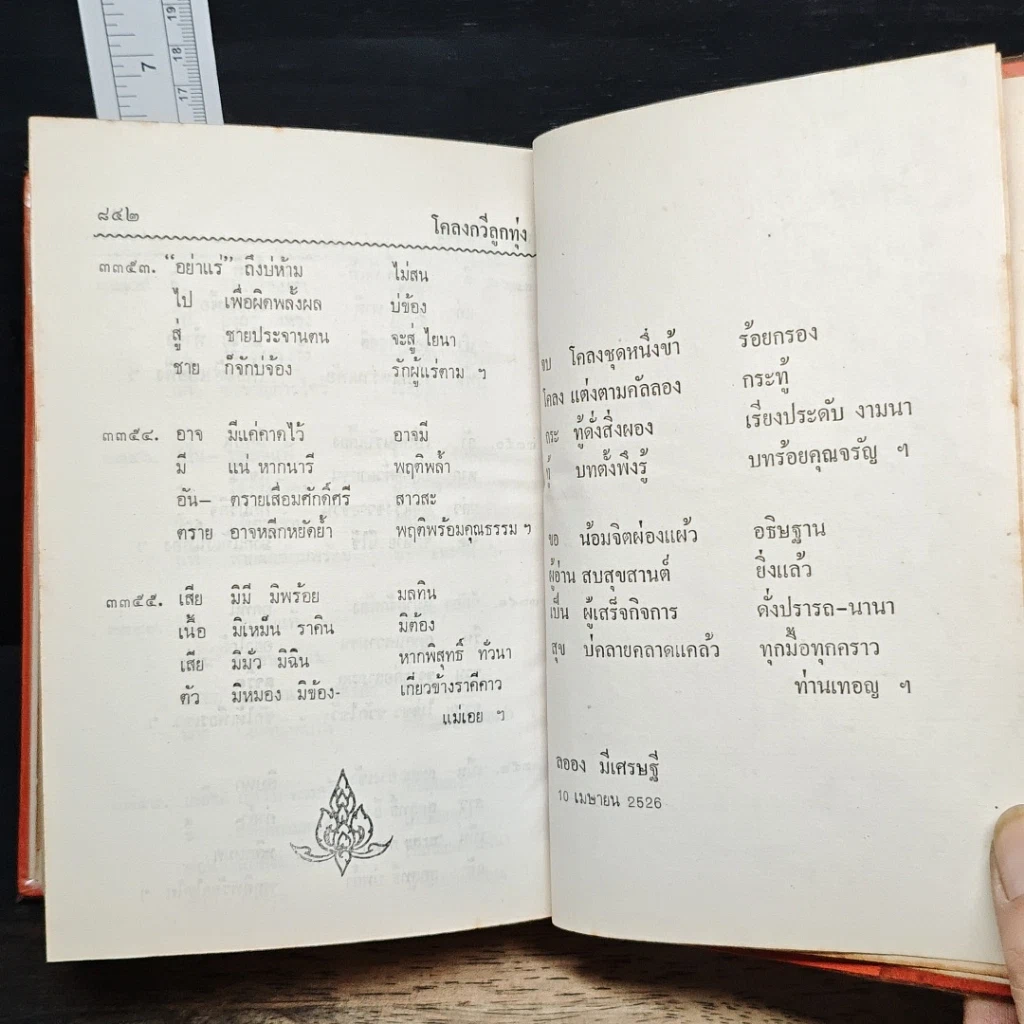 7
19
18
17
๘๔๒
โคลงกวีลูกทุ่ง
๓๓๕๓. “อย่าแร่” ถึงบ่ห้าม ไม่สน
ไป เพื่อผิดพลั้งผล บ่ข้อง
สู่ ชายประจานตน จะสู่ ไยนา
ชาย ก็จักบ่จ้อง รักผู้แร่ตาม ฯ
๓๓๕๔. อาจ มีแค่คาดไว้ อาจมี
มี แน่ หากนารี พฤติพล้ำ
อัน– ตรายเสื่อมศักดิ์ศรี สาวสะ
ตราย อาจหลีกหยัดย้ำ พฤติพร้อมคุณธรรม ฯ
๓๓๕๕. เสีย มิมี มิพร้อย มลทิน
เนื้อ มิเหม็น ราคิน มิต้อง
เสีย มิมัว มิฉิน หากพิสุทธิ์ ทั่วนา
ตัว มิหมอง มิข้อง- เกี่ยวข้างราคีคาว
แม่เอย ฯ
จบ โคลงชุดหนึ่งข้า ร้อยกรอง
โคลง แต่งตามคัลลอง กระทู้
กระ ทู้ดั่งสิ่งผอง เรียงประดับ งามนา
ทู้ บทตั้งพึงรู้ บทร้อยคุณจรัญ ฯ
ขอ น้อมจิตผ่องแผ้ว อธิษฐาน
ผู้อ่าน สบสุขสานต์ ยิ่งแล้ว
เป็น ผู้เสร็จกิจการ ดั่งปรารถ-นานา
สุข บ่คลายคลาดแคล้ว ทุกมื้อทุกคราว
ท่านเทอญ ฯ
ลออง มีเศรษฐี
10 เมษายน 2526